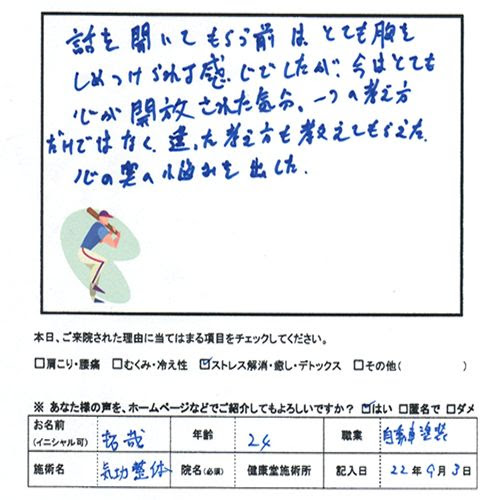 話を聞いてもらう前は、とても胸を
しめつけられる感じでしたが、今はとても
心が開放された気分。一つの考え方
だけではなく、違った考え方も教えてもらえた。
心の奥の悩みを出した。
本日、ご来院された理由に当てはまる項目をチェックしてください。
□肩こり・腰痛 □むくみ・冷え性 ☑ストレス解消・癒し・デトックス □その他( )
※ あなた様の声を、ホームページなどでご紹介してもよろしいですか？ ☑はい □匿名で □ダメ
お名前 (イニシャル可) 拓哉 年齢 24 職業 自転車塗装
施術名 気功整体 院名(必須) 健康堂施術所 記入日 22年9月3日